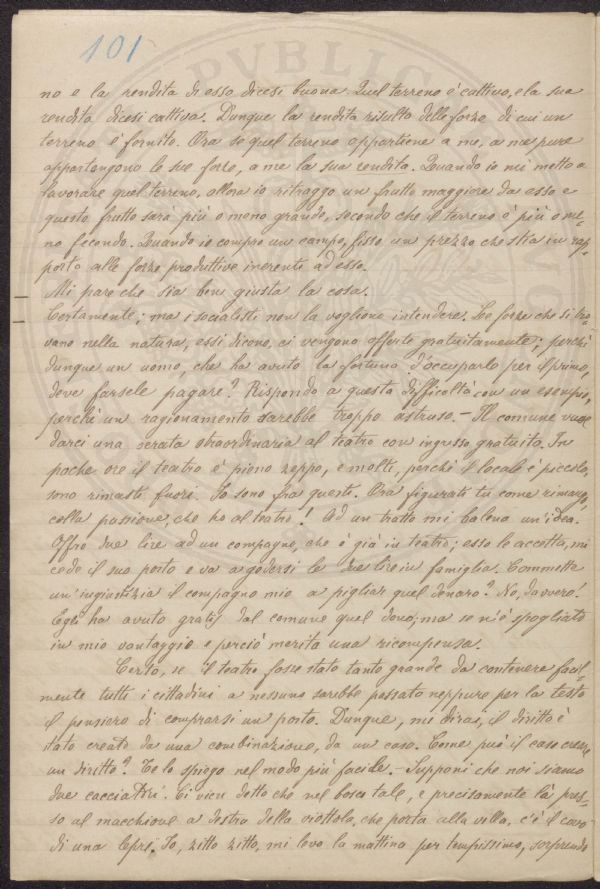 101
no e la rendita di esso dicesi buona. Quel terreno è cattivo, e la sua
rendita dicesi cattiva. Dunque la rendita risulta delle forze di cui un
terreno è fornito. Ora se quel terreno appartiene a me, a me pure
appartengono le sue forze, a me la sua rendita. Quando io mi metto a
lavorare quel terreno, allora io ritraggo un frutto maggiore da esso e
questo frutto sarà più o meno grande, secondo che il terreno è più o me-
no fecondo. Quando io compro un campo, fisso un prezzo che stia in rap-
porto alle forze produttive inerenti ad esso.
Mi pare che sia ben giusta la cosa.
Certamente; ma i socialisti non la vogliono intendere. Le forze che si tro-
vano nella natura, essi dicono, ci vengono offerte gratuitamente; perchè
dunque un uomo, che ha avuto la fortuna d'occuparlo per il primo,
deve farsele pagare? Rispondo a questa difficoltà con un esempio,
perchè un ragionamento sarebbe troppo astruso. - Il comune vuole
darci una serata straordinaria al teatro con ingresso gratuito. In
poche ore il teatro è pieno zeppo, e molti, perchè il locale è piccolo,
sono rimasti fuori. Io sono fra questi. Ora figurati tu come rimango,
colla passione, che ho al teatro! Ad un tratto mi balena un'idea.
Offro due lire ad un compagno, che è già in teatro; esso le accetta, mi
cede il suo posto e va a godersi le due lire in famiglia. Commette
un'ingiustizia il compagno mio a pigliar quel denaro? No, davvero!
Egli ha avuto gratis dal comune quel dono; ma se n'è spogliato
in mio vantaggio e perciò merita una ricompensa.
Certo, se il teatro fosse stato tanto grande da contenere facil-
mente tutti i cittadini a nessuno sarebbe passato neppure per la testa
il pensiero di comprarsi un posto. Dunque, mi dirai, il diritto è
stato creato da una combinazione, da un caso. Come può il caso creare
un diritto? Te lo spiego nel modo più facile. - Supponi che noi siamo
due cacciatori. Ci vien detto che nel bosco tale, e precisamente là pres-
so al macchione a destra della viottola, che porta alla villa, c'è il covo
di una lepre. Io, zitto zitto, mi levo la mattina per tempissimo, sorprendo